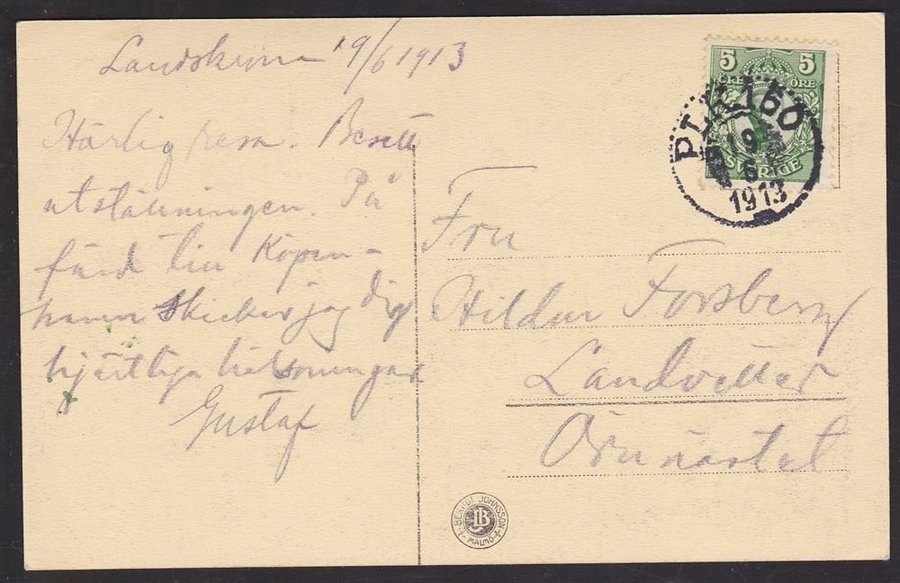 Landskrona 19/6 1913
Härlig resa. Besett
utställningen. På
färd till Köpen-
hamn skickar jag dig
hjärtliga hälsningar
Gustaf
5 5
ÖRE ÖRE
SVERIGE
PLK 160
19
6
1913
Fru
Hildur Forsberg
Landvetter
BENGT JOHNSSON
MALMÖ